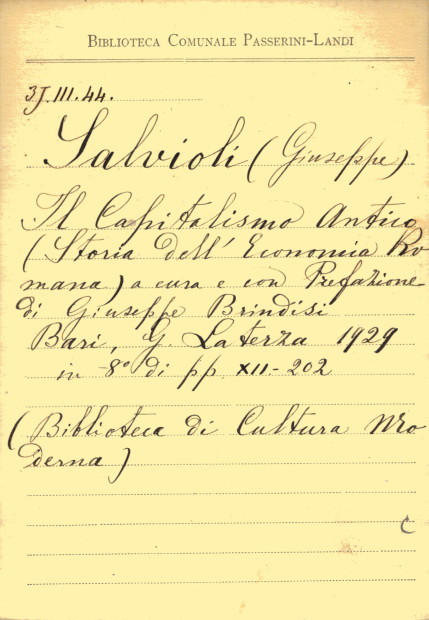 BIBLIOTECA COMUNALE PASSERINI-LANDI
3J.III.44.
Salvioli (Giuseppe)
Il Capitalismo Antico
(Storia dell'Economia Ro
mana) a cura e con Prefazione
di Giuseppe Brindisi
Bari, G. Laterza 1929
in -8° di pp. XII-202
(Biblioteca di Cultura Mo
derna)
C